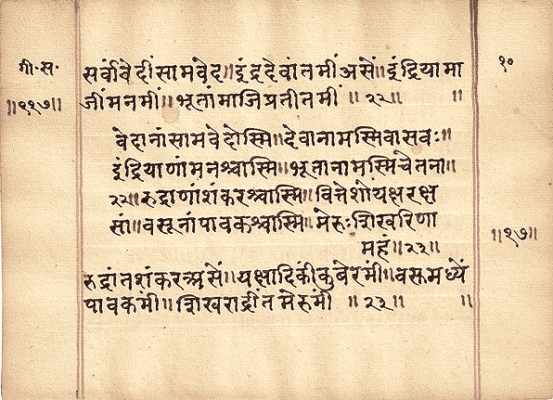 गी॰स॰
॥११७॥
१०
सर्वांवेदींसामवेद॥इंद्रदेवांतमींअसें॥इंद्रियामा
जींमनमीं॥भूतांमाजिप्रतीतमीं॥२२॥ ॥
वेदानांसामवेदोस्मि॥देवानामस्मिवासवः॥
इंद्रियाणांमनश्चास्मि॥भूतानामस्मिचेतना॥
२२॥रुद्राणांशंकरश्चास्मि॥वित्तेशोयक्षरक्ष
सां॥वसूनांपावकश्चास्मि॥मेरुःशिखरिणा
महं॥२३॥
॥१७॥
रुद्रांतशंकरअसें॥यक्षादिकींकुबेरमीं॥वसुमध्यें
पावकमीं॥शिखराद्रींतमेरुमीं॥२३॥ ॥